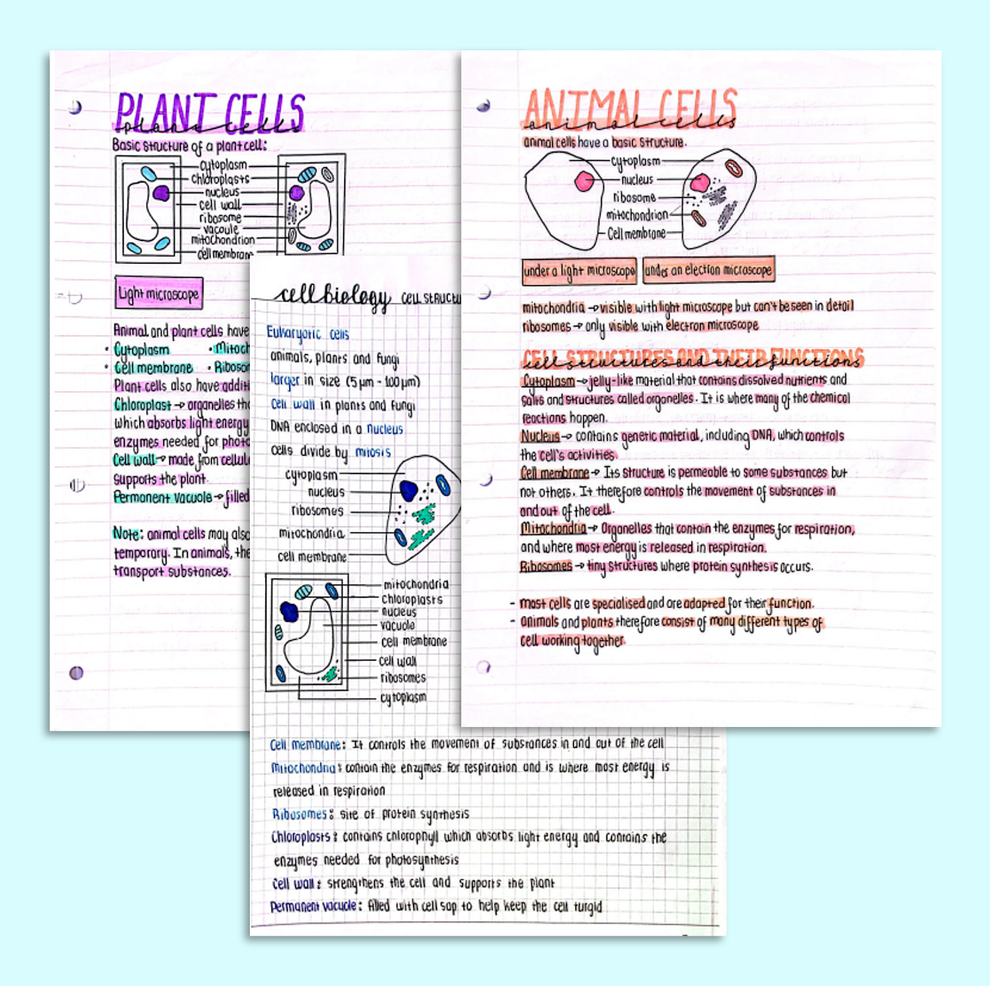 PLANT CELLS
plant cells
Basic structure of a plant cell:
cytoplasm
chloroplasts
nucleus
cell wall
ribosome
vacoule
mitochondrion
cell membrane
Light microscope
Animal and plant cells have
• Cytoplasm • Mitoch
• Cell membrane • Riboso
Plant cells also have additi
Chloroplast → organelles tha
which absorbs light energy
enzymes needed for photo
Cell wall → made from cellulo
supports the plant.
Permanent vacuole → filled
Note: animal cells may also
temporary. In animals, the
transport substances.
cell biology CELL STRUCTU
Eukaryotic cells
animals, plants and fungi
larger in size (5μm - 100μm)
Cell wall in plants and fungi
DNA enclosed in a nucleus
cells divide by mitosis
cytoplasm
nucleus
ribosomes
mitochondria
cell membrane
mitochondria
chloroplasts
nucleus
vacuole
cell membrane
cell wall
ribosomes
cytoplasm
Cell membrane: It controls the movement of substances in and out of the cell
Mitochondria: contain the enzymes for respiration and is where most energy is
released in respiration
Ribosomes: site of protein synthesis
Chloroplasts: contains chlorophyll which absorbs light energy and contains the
enzymes needed for photosynthesis
Cell wall: strengthens the cell and supports the plant
Permanent vacuole: filled with cell sap to help keep the cell turgid
ANIMAL CELLS
animal cells
animal cells have a basic structure.
cytoplasm
nucleus
ribosome
mitochondrion
Cell membrane
under a light microscope
under an electron microscope
mitochondria → visible with light microscope but can't be seen in detail
ribosomes → only visible with electron microscope
CELL STRUCTURES AND THEIR FUNCTIONS
cell structures and their functions
Cytoplasm → jelly-like material that contains dissolved nutrients and
salts and structures called organelles. It is where many of the chemical
reactions happen.
Nucleus → contains genetic material, including DNA, which controls
the cell's activities.
Cell membrane → Its structure is permeable to some substances but
not others. It therefore controls the movement of substances in
and out of the cell.
Mitochondria → Organelles that contain the enzymes for respiration,
and where most energy is released in respiration.
Ribosomes → tiny structures where protein synthesis occurs.
- most cells are specialised and are adapted for their function.
- animals and plants therefore consist of many different types of
cell working together.